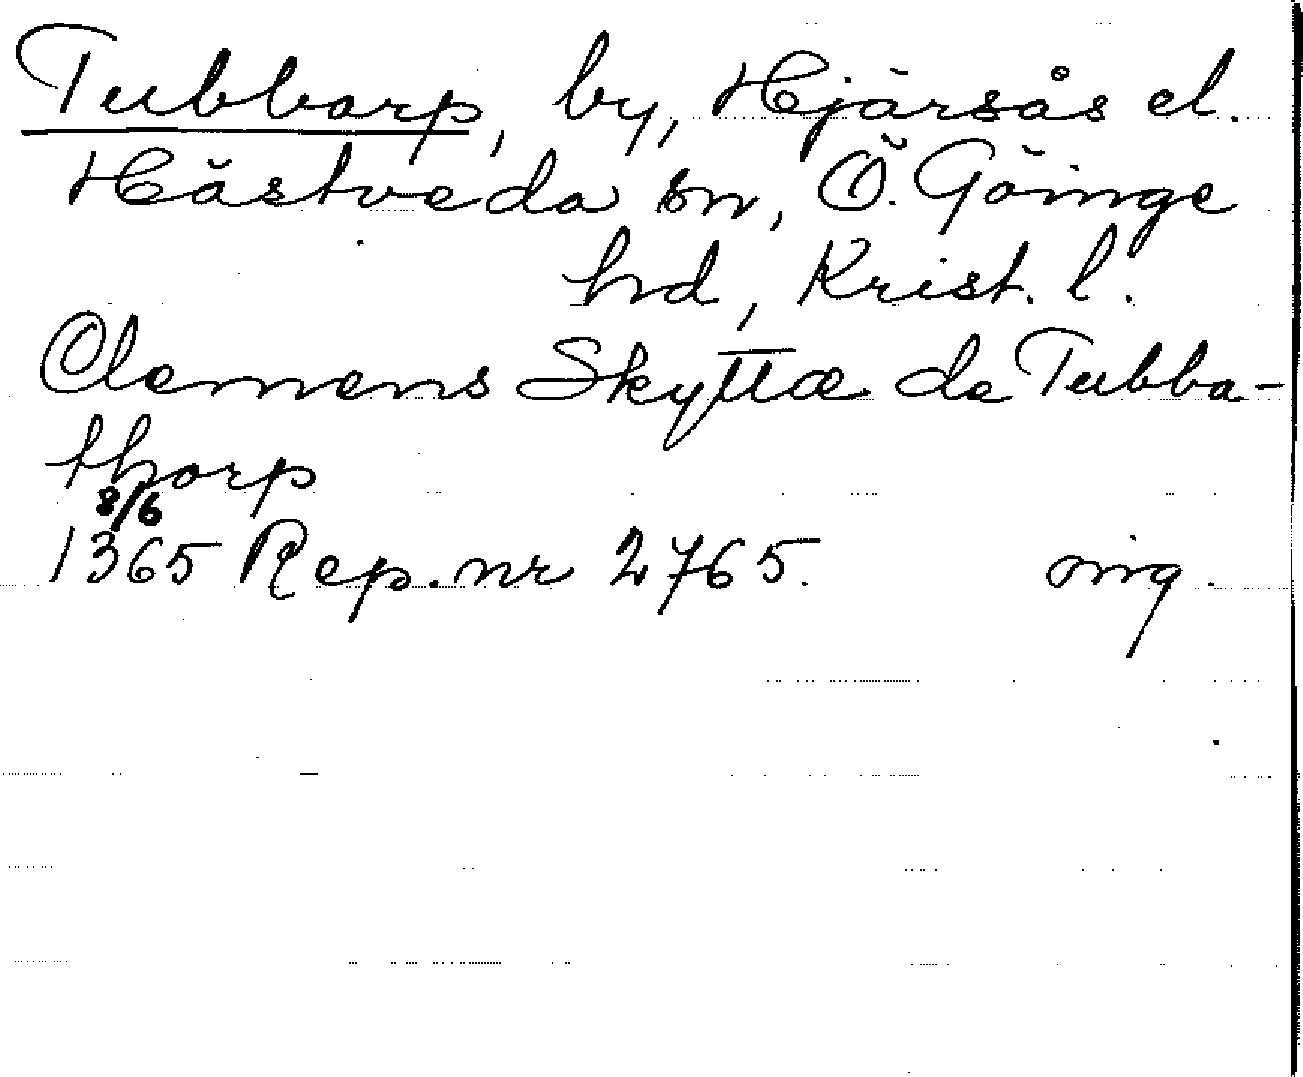 Tubbarp, by, Hjärsås el.
Hästveda sn, Ö. Göinge
hd, Krist. l.
Clemens Skyttæ de Tubba-
thorp
8/6
1365 Rep. nr 2765. oing.